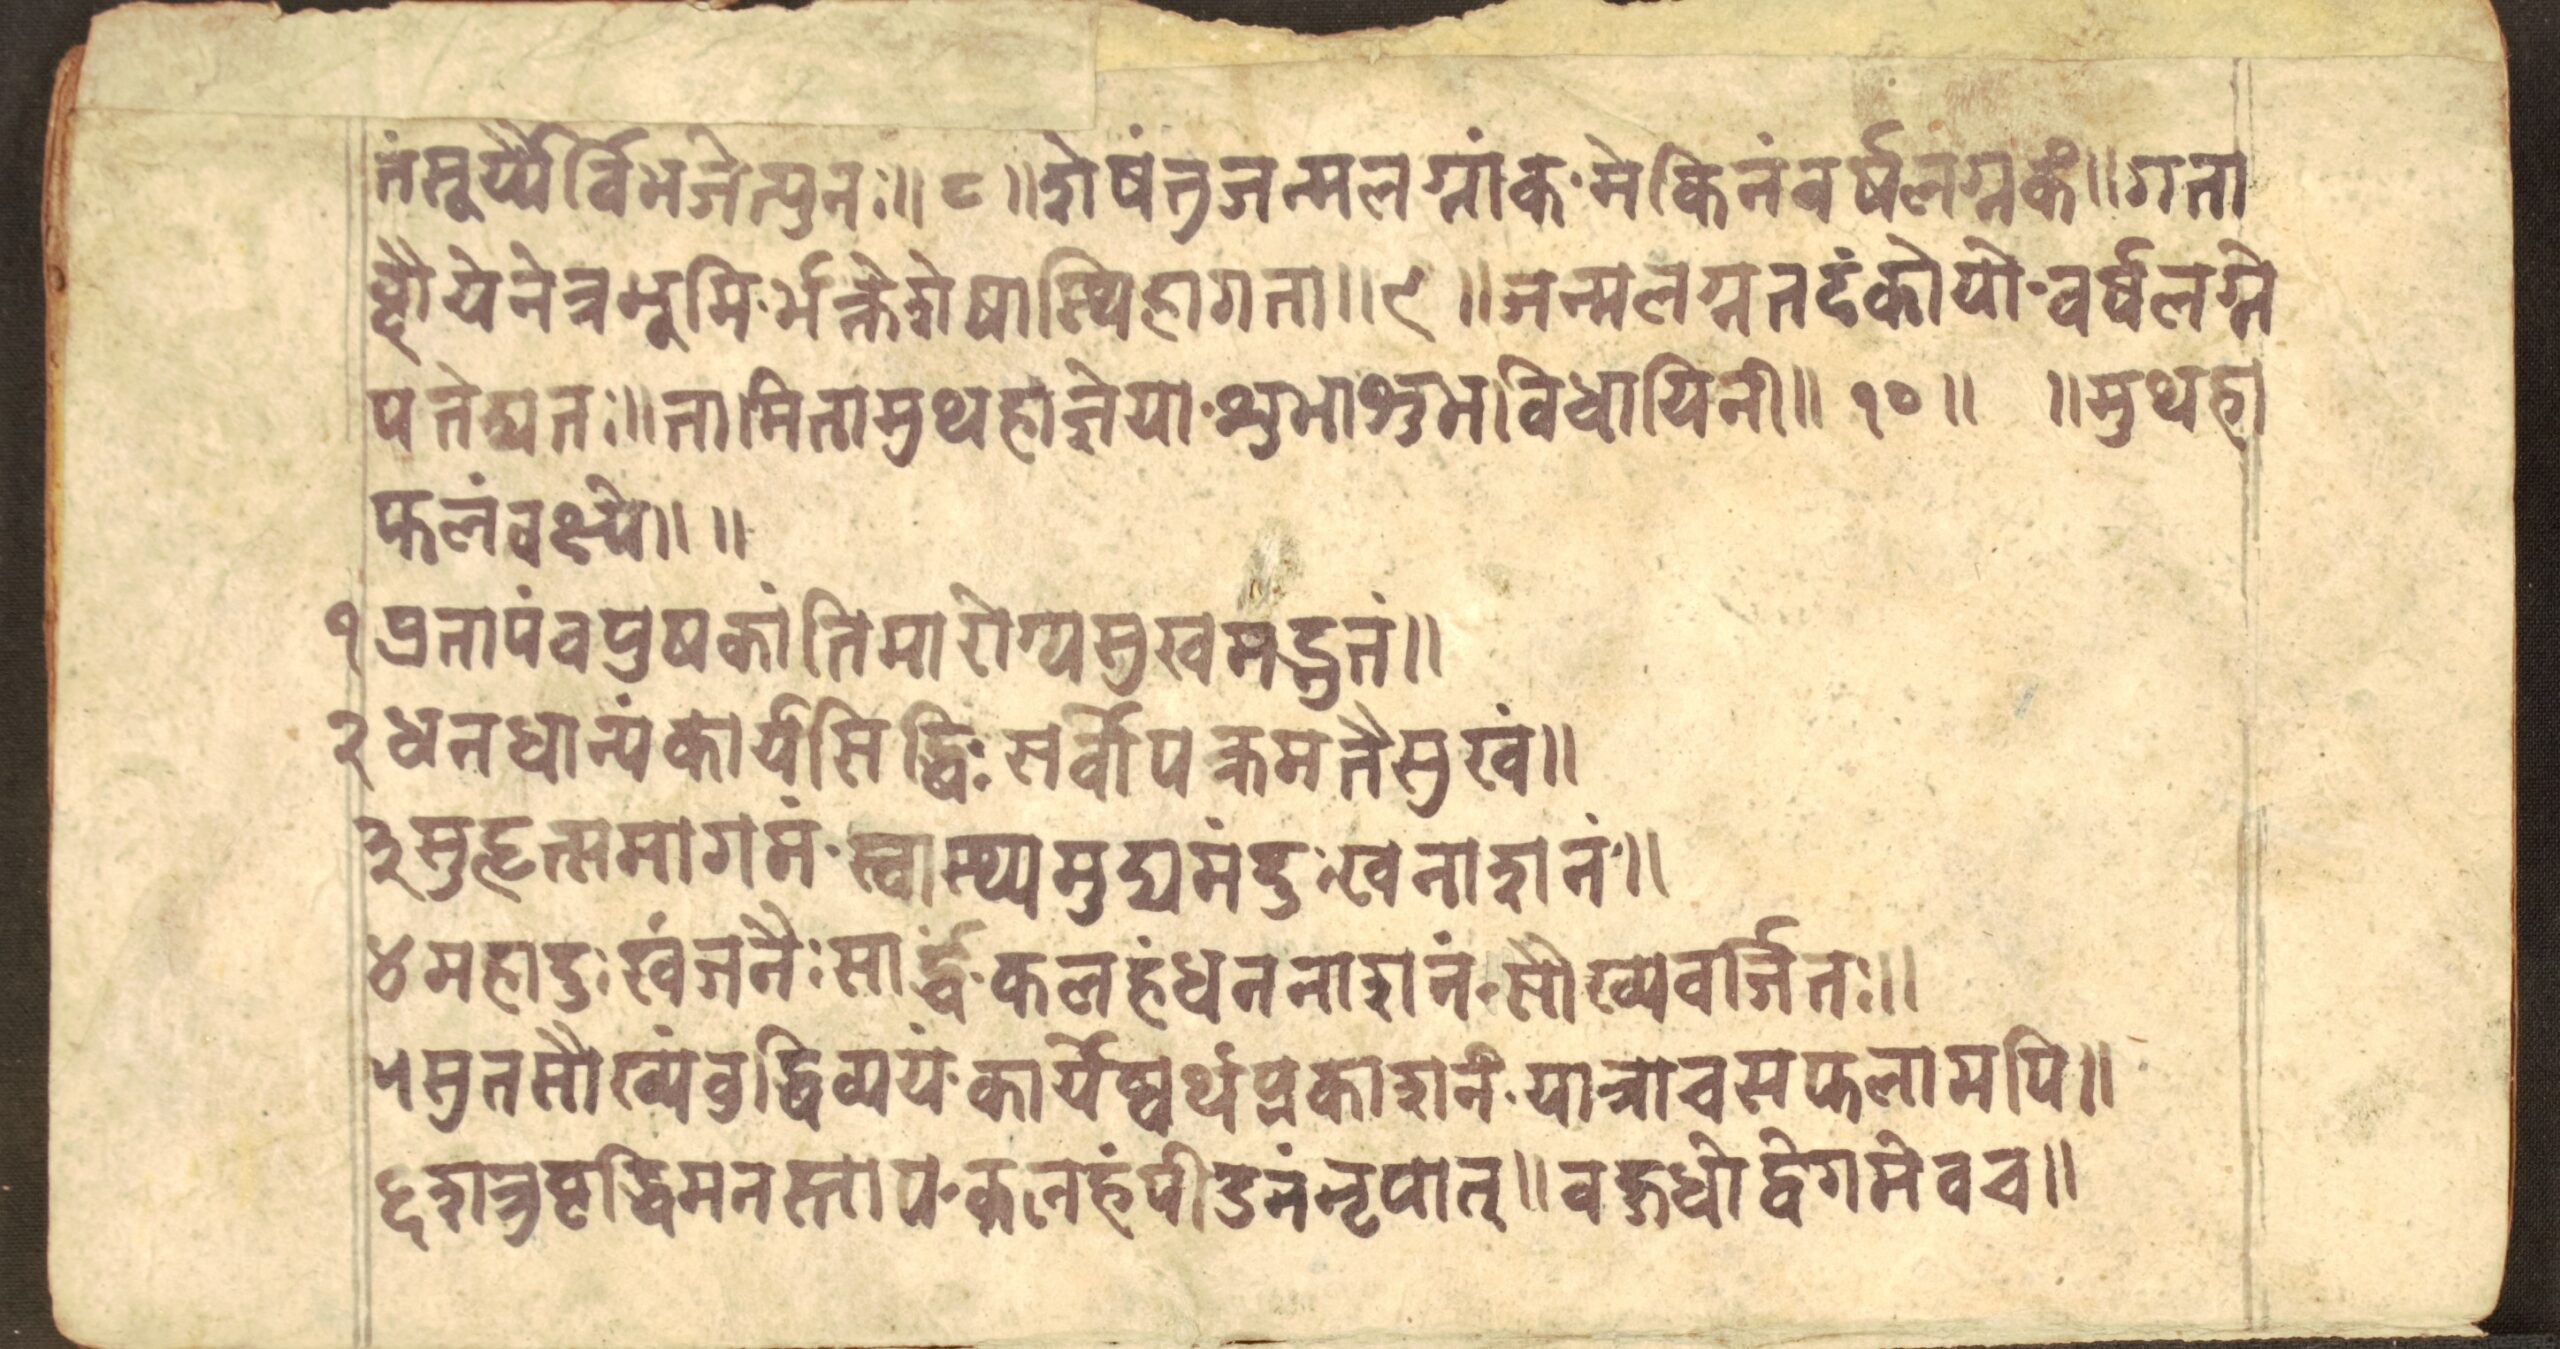 तंसूर्य्यैर्विभजेत्पुनः॥८॥शेषंतुजन्मलग्नांक॰मेकिनंवर्षलग्नकं॥गता
पतेद्यतः॥तामितामुथहाज्ञेया॰शुभाशुभविधायिनी॥१०॥ ॥मुथहा
फलंवक्ष्ये॥ ॥
१प्रतापंवपुषकांतिमारोग्यमुखमद्भुतं॥
२धनधान्यंकार्यसिद्धिःसर्वोपक्रमतैसुखं॥
३सुहृत्समागमं॰स्वास्थ्यमुद्यमंदुःखनाशनं॥
४महादुःखंजनैःसार्द्धं॰कलहंधननाशनं॰सौख्यवर्जितः॥
५सुतसौख्यंवुद्धिव्ययं॰कार्येष्वर्थंप्रकाशनं॰यात्राचसफलामपि॥
६शत्रुवृद्धिमनस्ताप॰कलहंपीडनंनृपात्॥वह्नुधोद्वेगमेवच॥